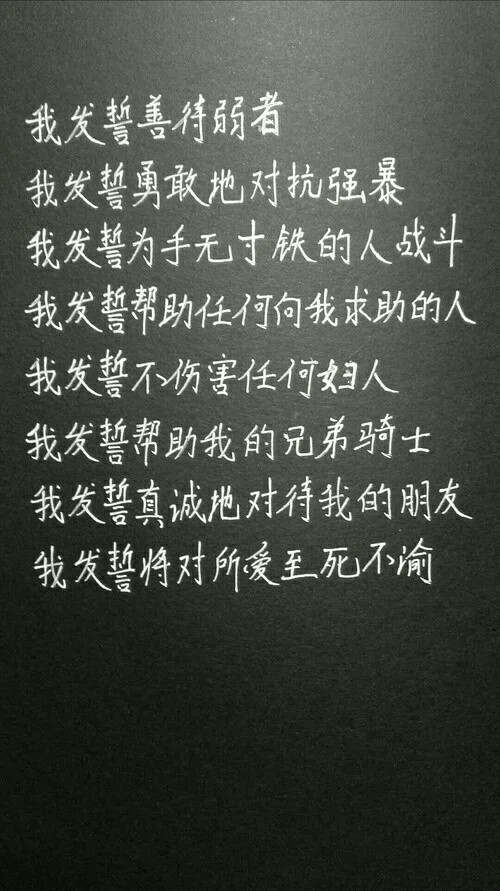 我发誓善待弱者
我发誓勇敢地对抗强暴
我发誓为手无寸铁的人战斗
我发誓帮助任何向我求助的人
我发誓不伤害任何妇人
我发誓帮助我的兄弟骑士
我发誓真诚地对待我的朋友
我发誓将对所爱至死不渝